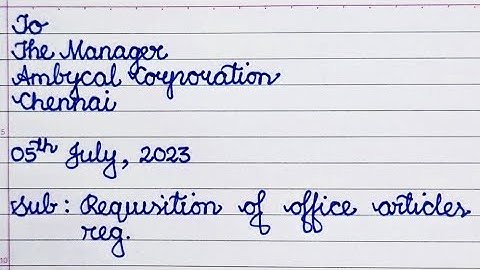 To
The Manager
Ambycal Corporation
Chennai
05th July, 2023
Sub : Requisition of office articles
reg.